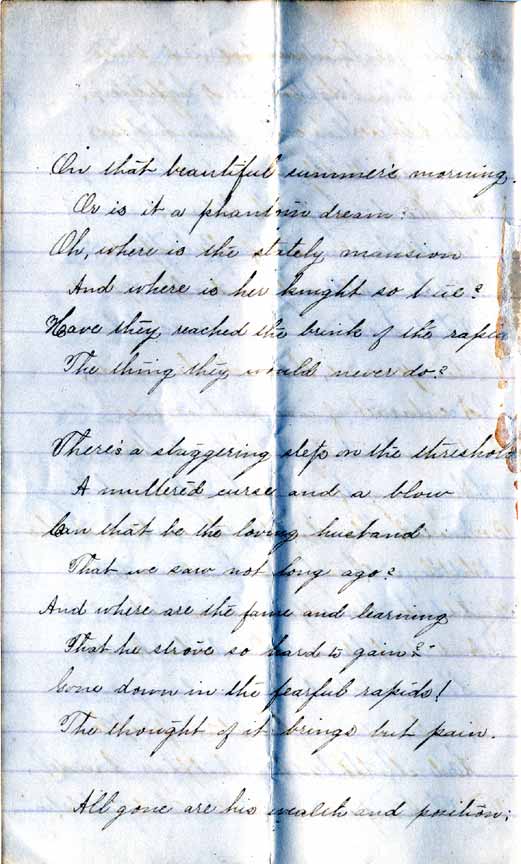 On that beautiful summer's morning.
Or is it a phantom dream?
Oh, where is the stately mansion
And where is her knight so true?
Have they reached the brink of the rapids
The thing they would never do?
There's a staggering step on the threshold
A muttered curse and a blow
Can that be the loving husband
That we saw not long ago?
And where are the fame and learning
That he strove so hard to gain?
Gone down in the fearful rapids!
The thought of it brings but pain.
All gone are his wealth and position;